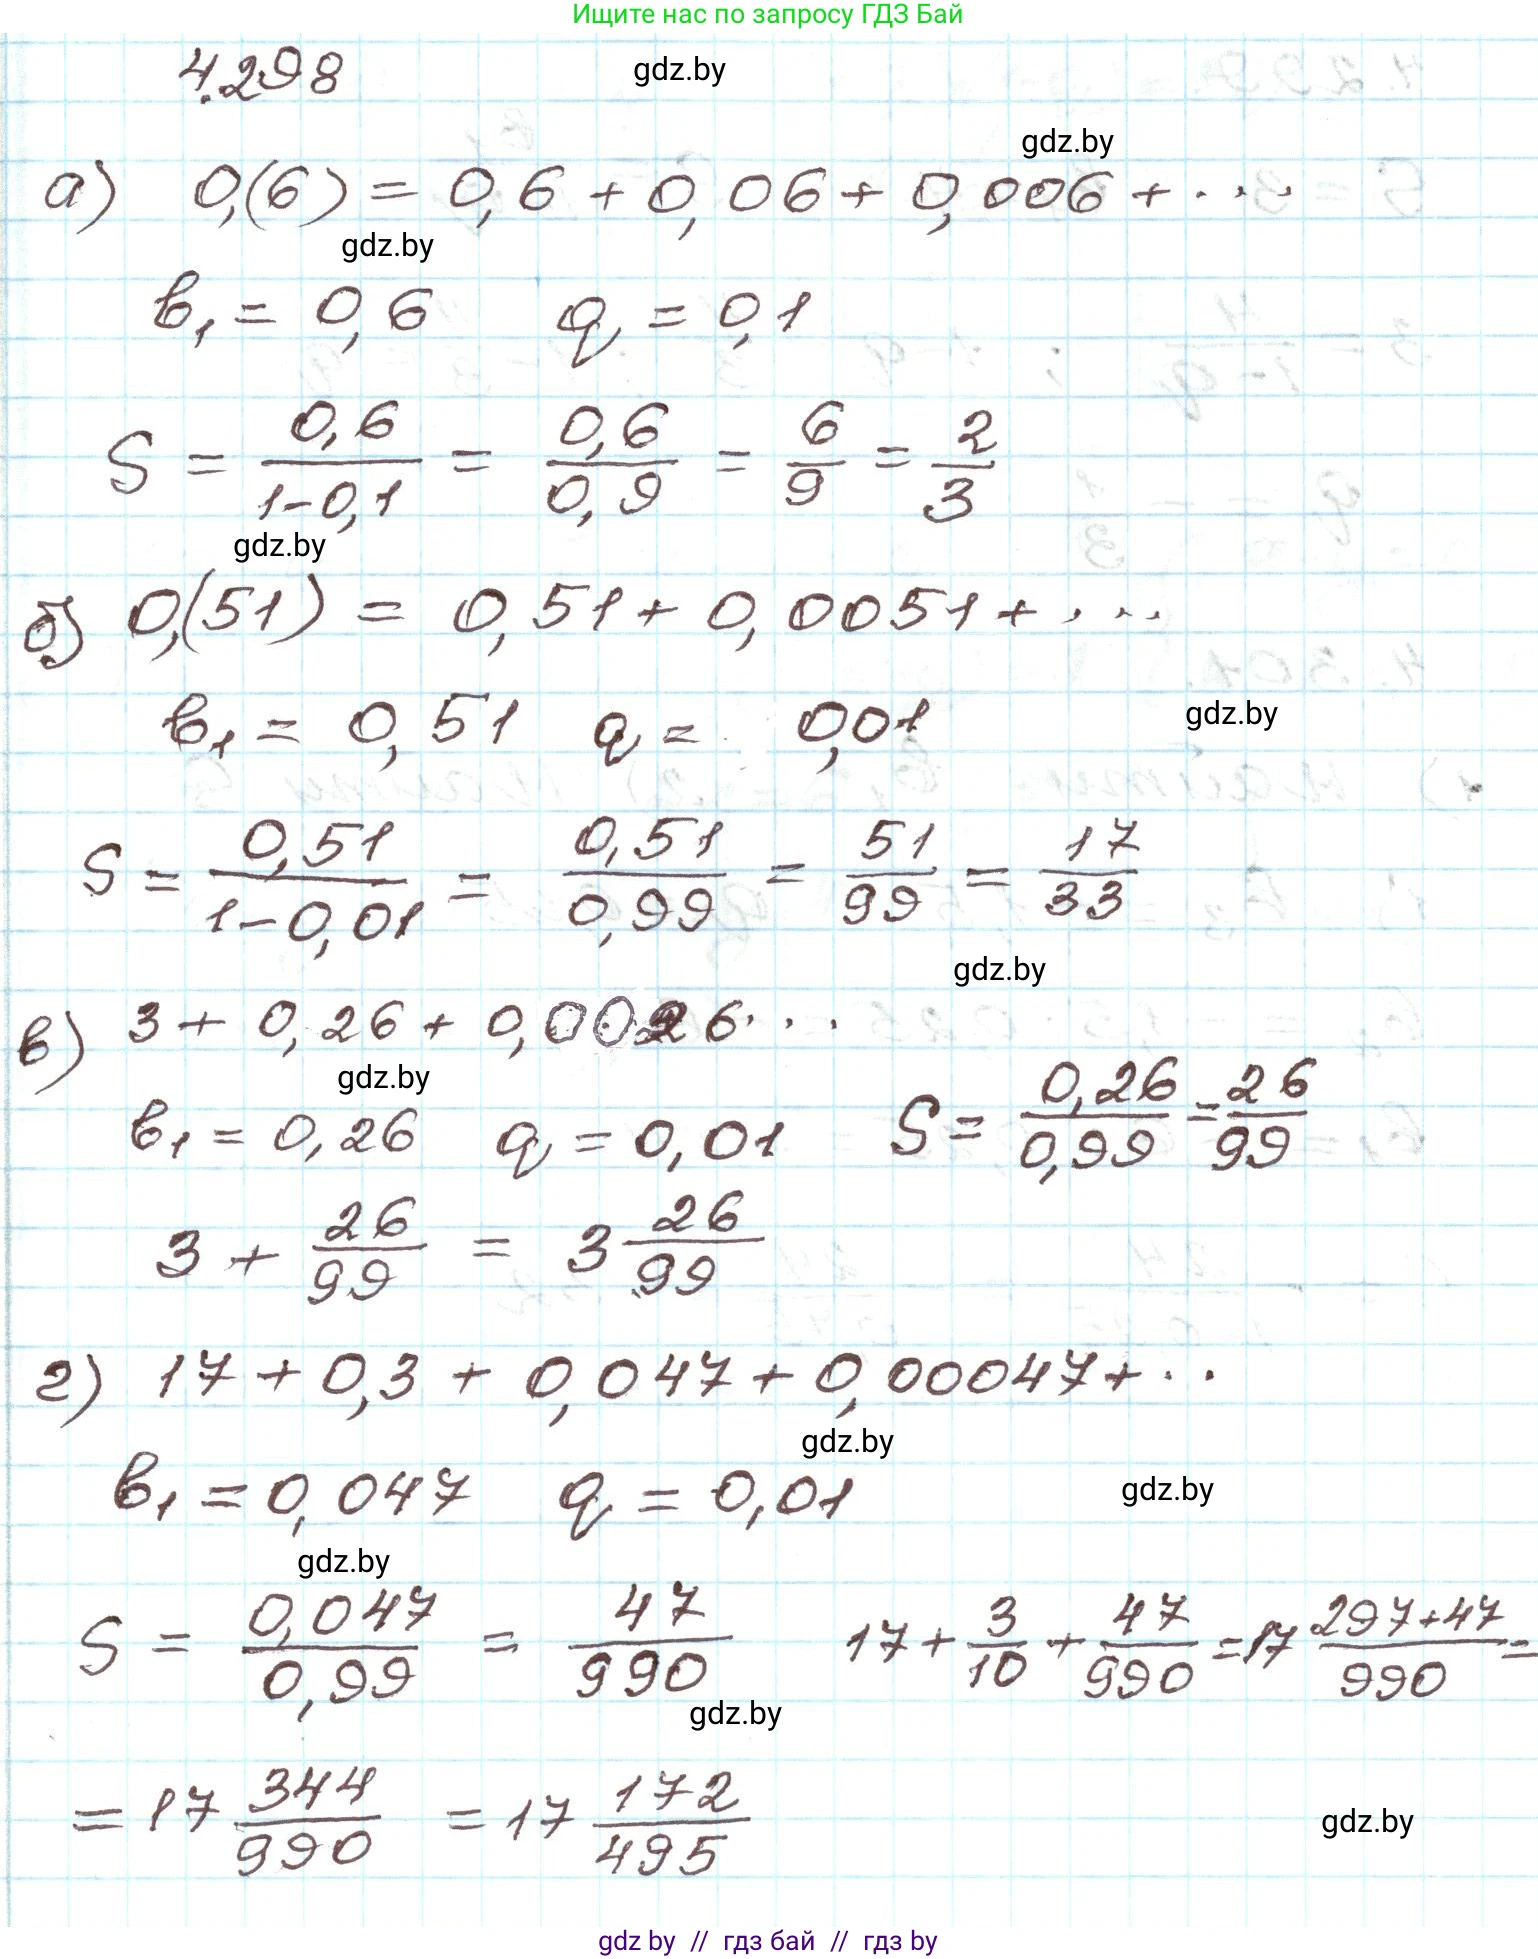 Ищите нас по запросу ГДЗ Бай
4.298
gdz.by
gdz.by
а) 0,(6) = 0,6 + 0,06 + 0,006 + ...
gdz.by
b₁ = 0,6 q = 0,1
S = 0,6/(1-0,1) = 0,6/0,9 = 6/9 = 2/3
gdz.by
б) 0,(51) = 0,51 + 0,0051 + ...
b₁ = 0,51 q = 0,01
gdz.by
S = 0,51/(1-0,01) = 0,51/0,99 = 51/99 = 17/33
gdz.by
в) 3 + 0,26 + 0,0026...
gdz.by
b₁ = 0,26 q = 0,01 S = 0,26/0,99 = 26/99
3 + 26/99 = 3 26/99
г) 17 + 0,3 + 0,047 + 0,00047 + ..
gdz.by
b₁ = 0,047 q = 0,01
gdz.by
gdz.by
S = 0,047/0,99 = 47/990 17 + 3/10 + 47/990 = 17 (297+47)/990 =
gdz.by
= 17 344/990 = 17 172/495
gdz.by
gdz by // гдз бай // гдз by